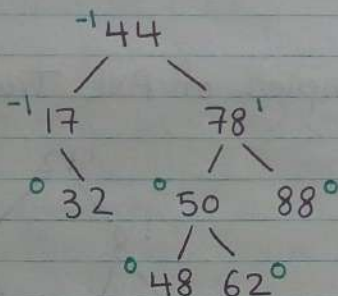 -1 44
-1 17 78 1
0 32 0 50 88 0
0 48 62 0